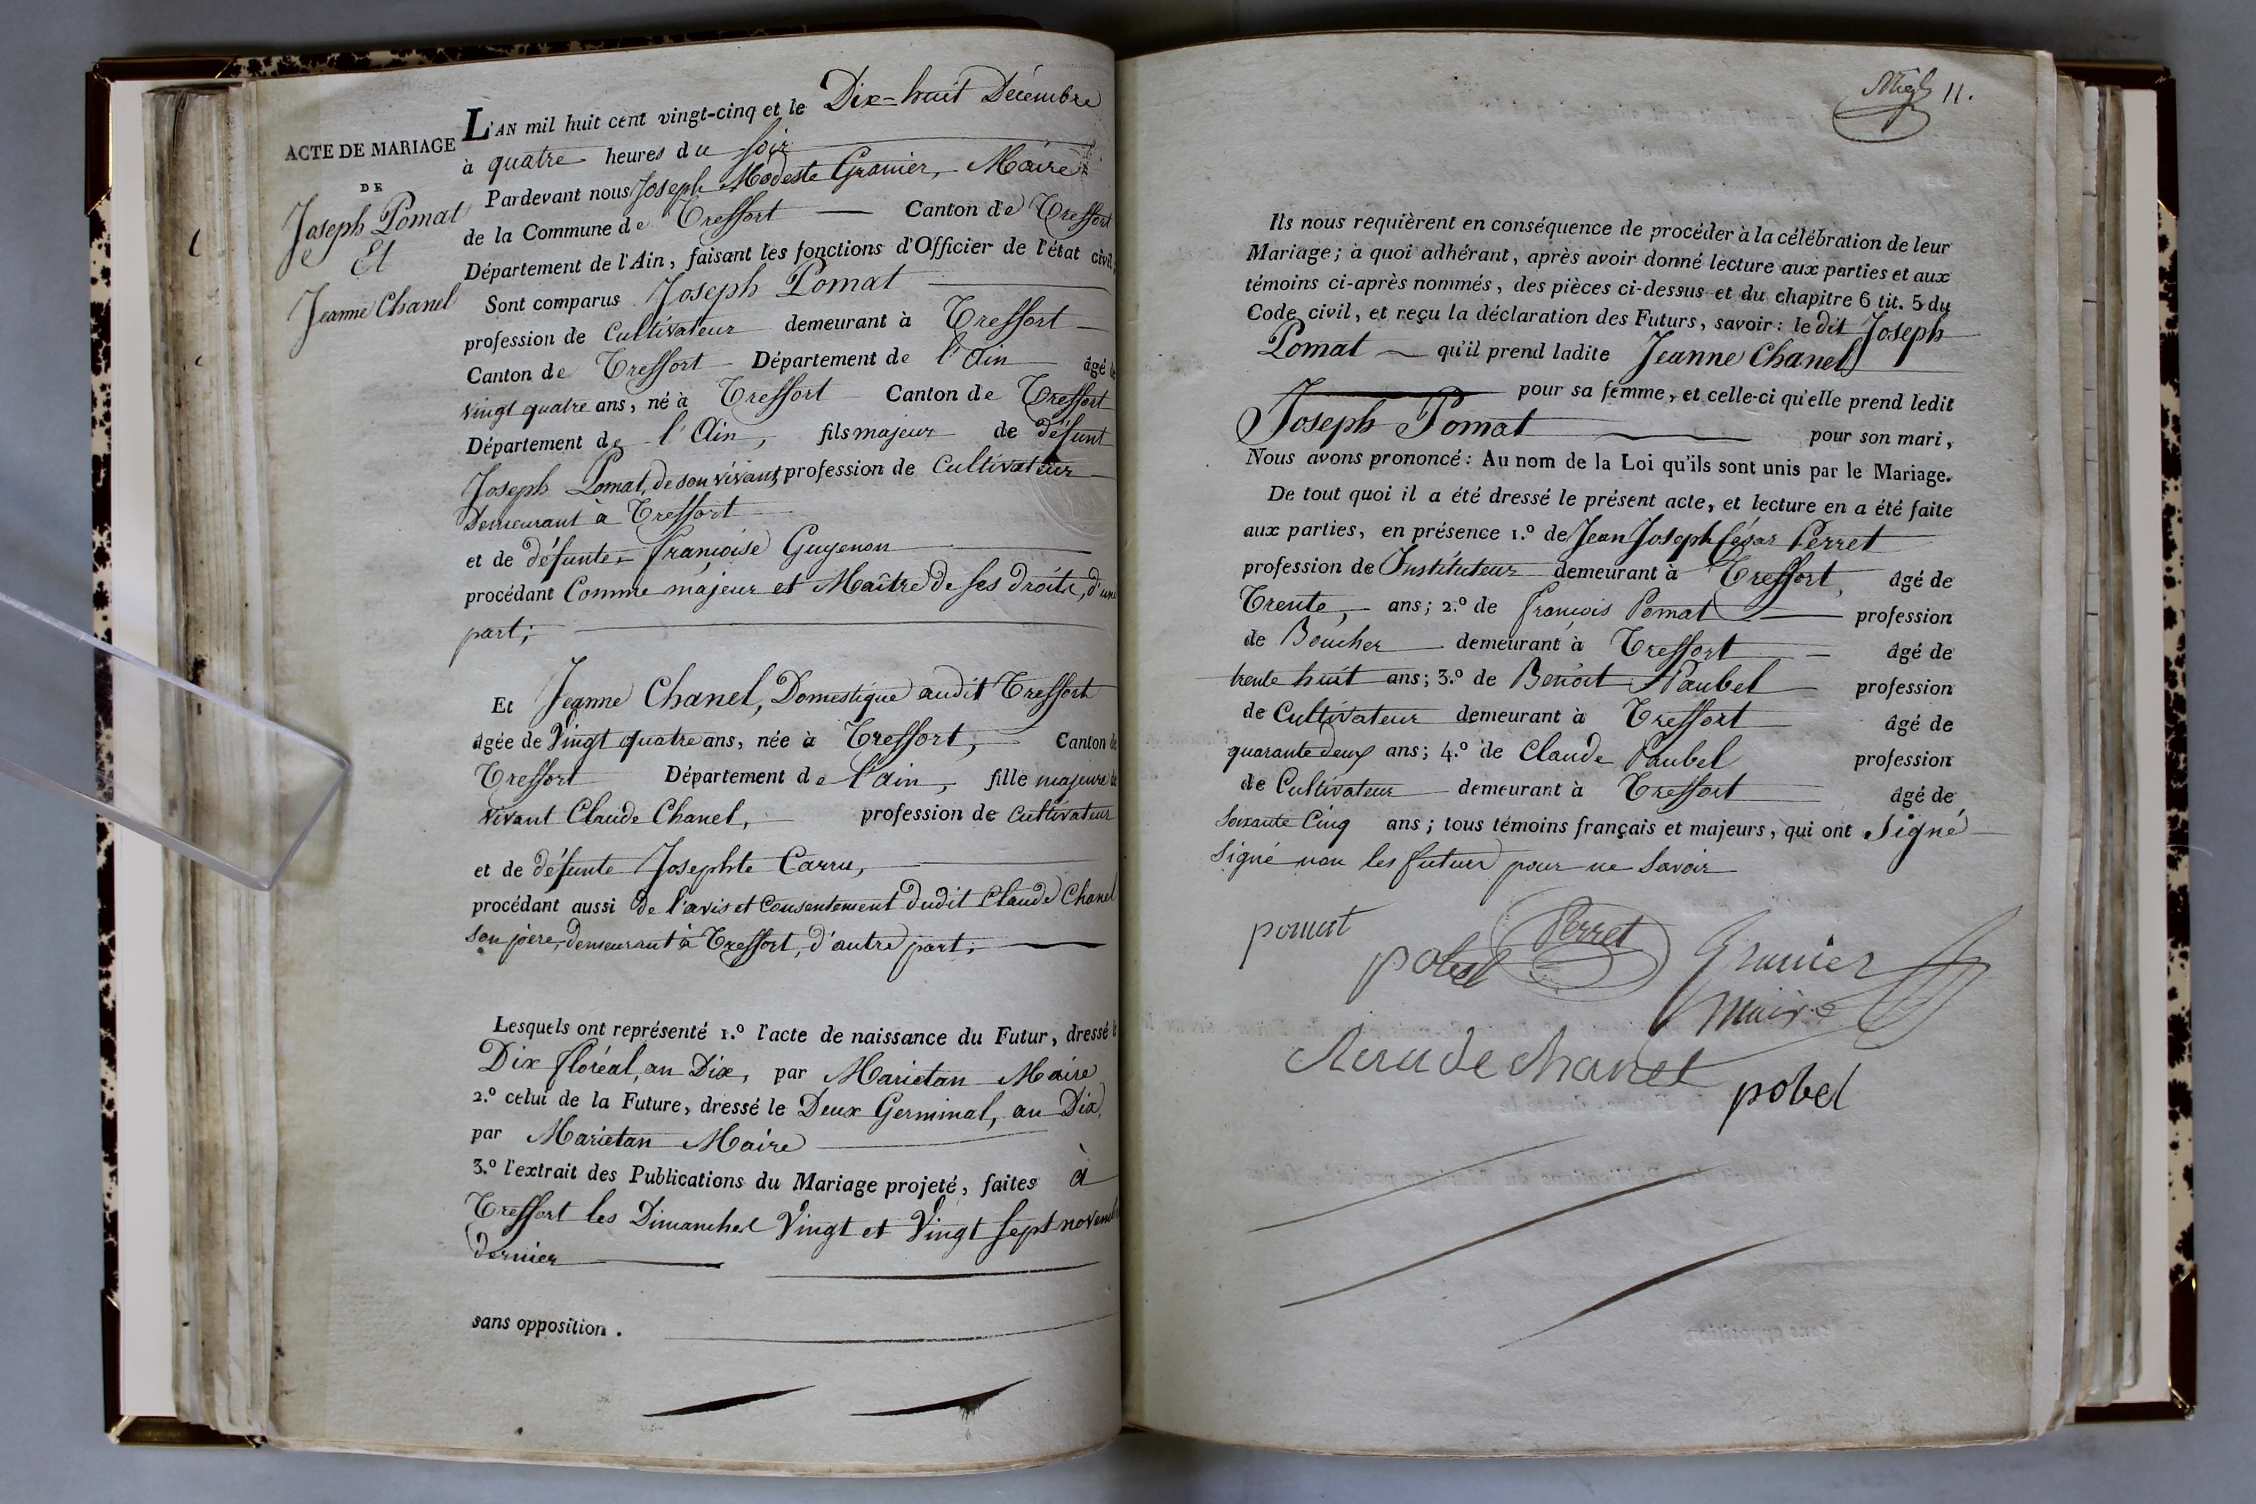 ACTE DE MARIAGE
DE
Joseph Pomat
Et
Jeanne Chanel
L'AN mil huit cent vingt-cinq et le Dix-huit Décembre
à quatre heures du soir
Pardevant nous Joseph Modeste Granier, Maire
de la Commune de Treffort — Canton de Treffort
Département de l'Ain, faisant les fonctions d'Officier de l'état civil,
Sont comparus Joseph Pomat
profession de Cultivateur demeurant à Treffort
Canton de Treffort Département de l'Ain âgé de
vingt quatre ans, né à Treffort Canton de Treffort
Département de l'Ain, fils majeur de défunt
Joseph Pomat, de son vivant profession de Cultivateur
Demeurant à Treffort
et de défunte françoise Guyenon
procédant Comme majeur et Maître de ses droits, d'une
part;
Et Jeanne Chanel, Domestique audit Treffort
âgée de Vingt quatre ans, née à Treffort, Canton de
Treffort Département de l'ain, fille majeure de
vivant Claude Chanel, profession de Cultivateur
et de défunte Josephte Carru,
procédant aussi De l'avis et Consentement dudit Claude Chanel
son père, demeurant à Treffort, d'autre part;
Lesquels ont représenté 1.º l'acte de naissance du Futur, dressé le
Dix floréal, an Dix, par Marietan Maire
2.º celui de la Future, dressé le Deux Germinal, an Dix,
par Marietan Maire
3.º l'extrait des Publications du Mariage projeté, faites à
Treffort les Dimanches Vingt et Vingt sept novembre
dernier
sans opposition.
11.
Ils nous requièrent en conséquence de procéder à la célébration de leur
Mariage; à quoi adhérant, après avoir donné lecture aux parties et aux
témoins ci-après nommés, des pièces ci-dessus et du chapitre 6 tit. 5 du
Code civil, et reçu la déclaration des Futurs, savoir: le dit Joseph
Pomat — qu'il prend ladite Jeanne Chanel
pour sa femme, et celle-ci qu'elle prend ledit
Joseph Pomat pour son mari,
Nous avons prononcé: Au nom de la Loi qu'ils sont unis par le Mariage.
De tout quoi il a été dressé le présent acte, et lecture en a été faite
aux parties, en présence 1.º de Jean Joseph César Perret
profession de Instituteur demeurant à Treffort, âgé de
Trente, ans; 2.º de françois Pomat profession
de Boucher demeurant à Treffort âgé de
trente huit ans; 3.º de Benoit Paubel profession
de Cultivateur demeurant à Treffort âgé de
quarante deux ans; 4.º de Claude Paubel profession
de Cultivateur demeurant à Treffort âgé de
soixante Cinq ans; tous témoins français et majeurs, qui ont Signé
Signé non les futurs pour ne Savoir
pomat
pobel
Perret
Granier
Maire
Claude chanel
pobel